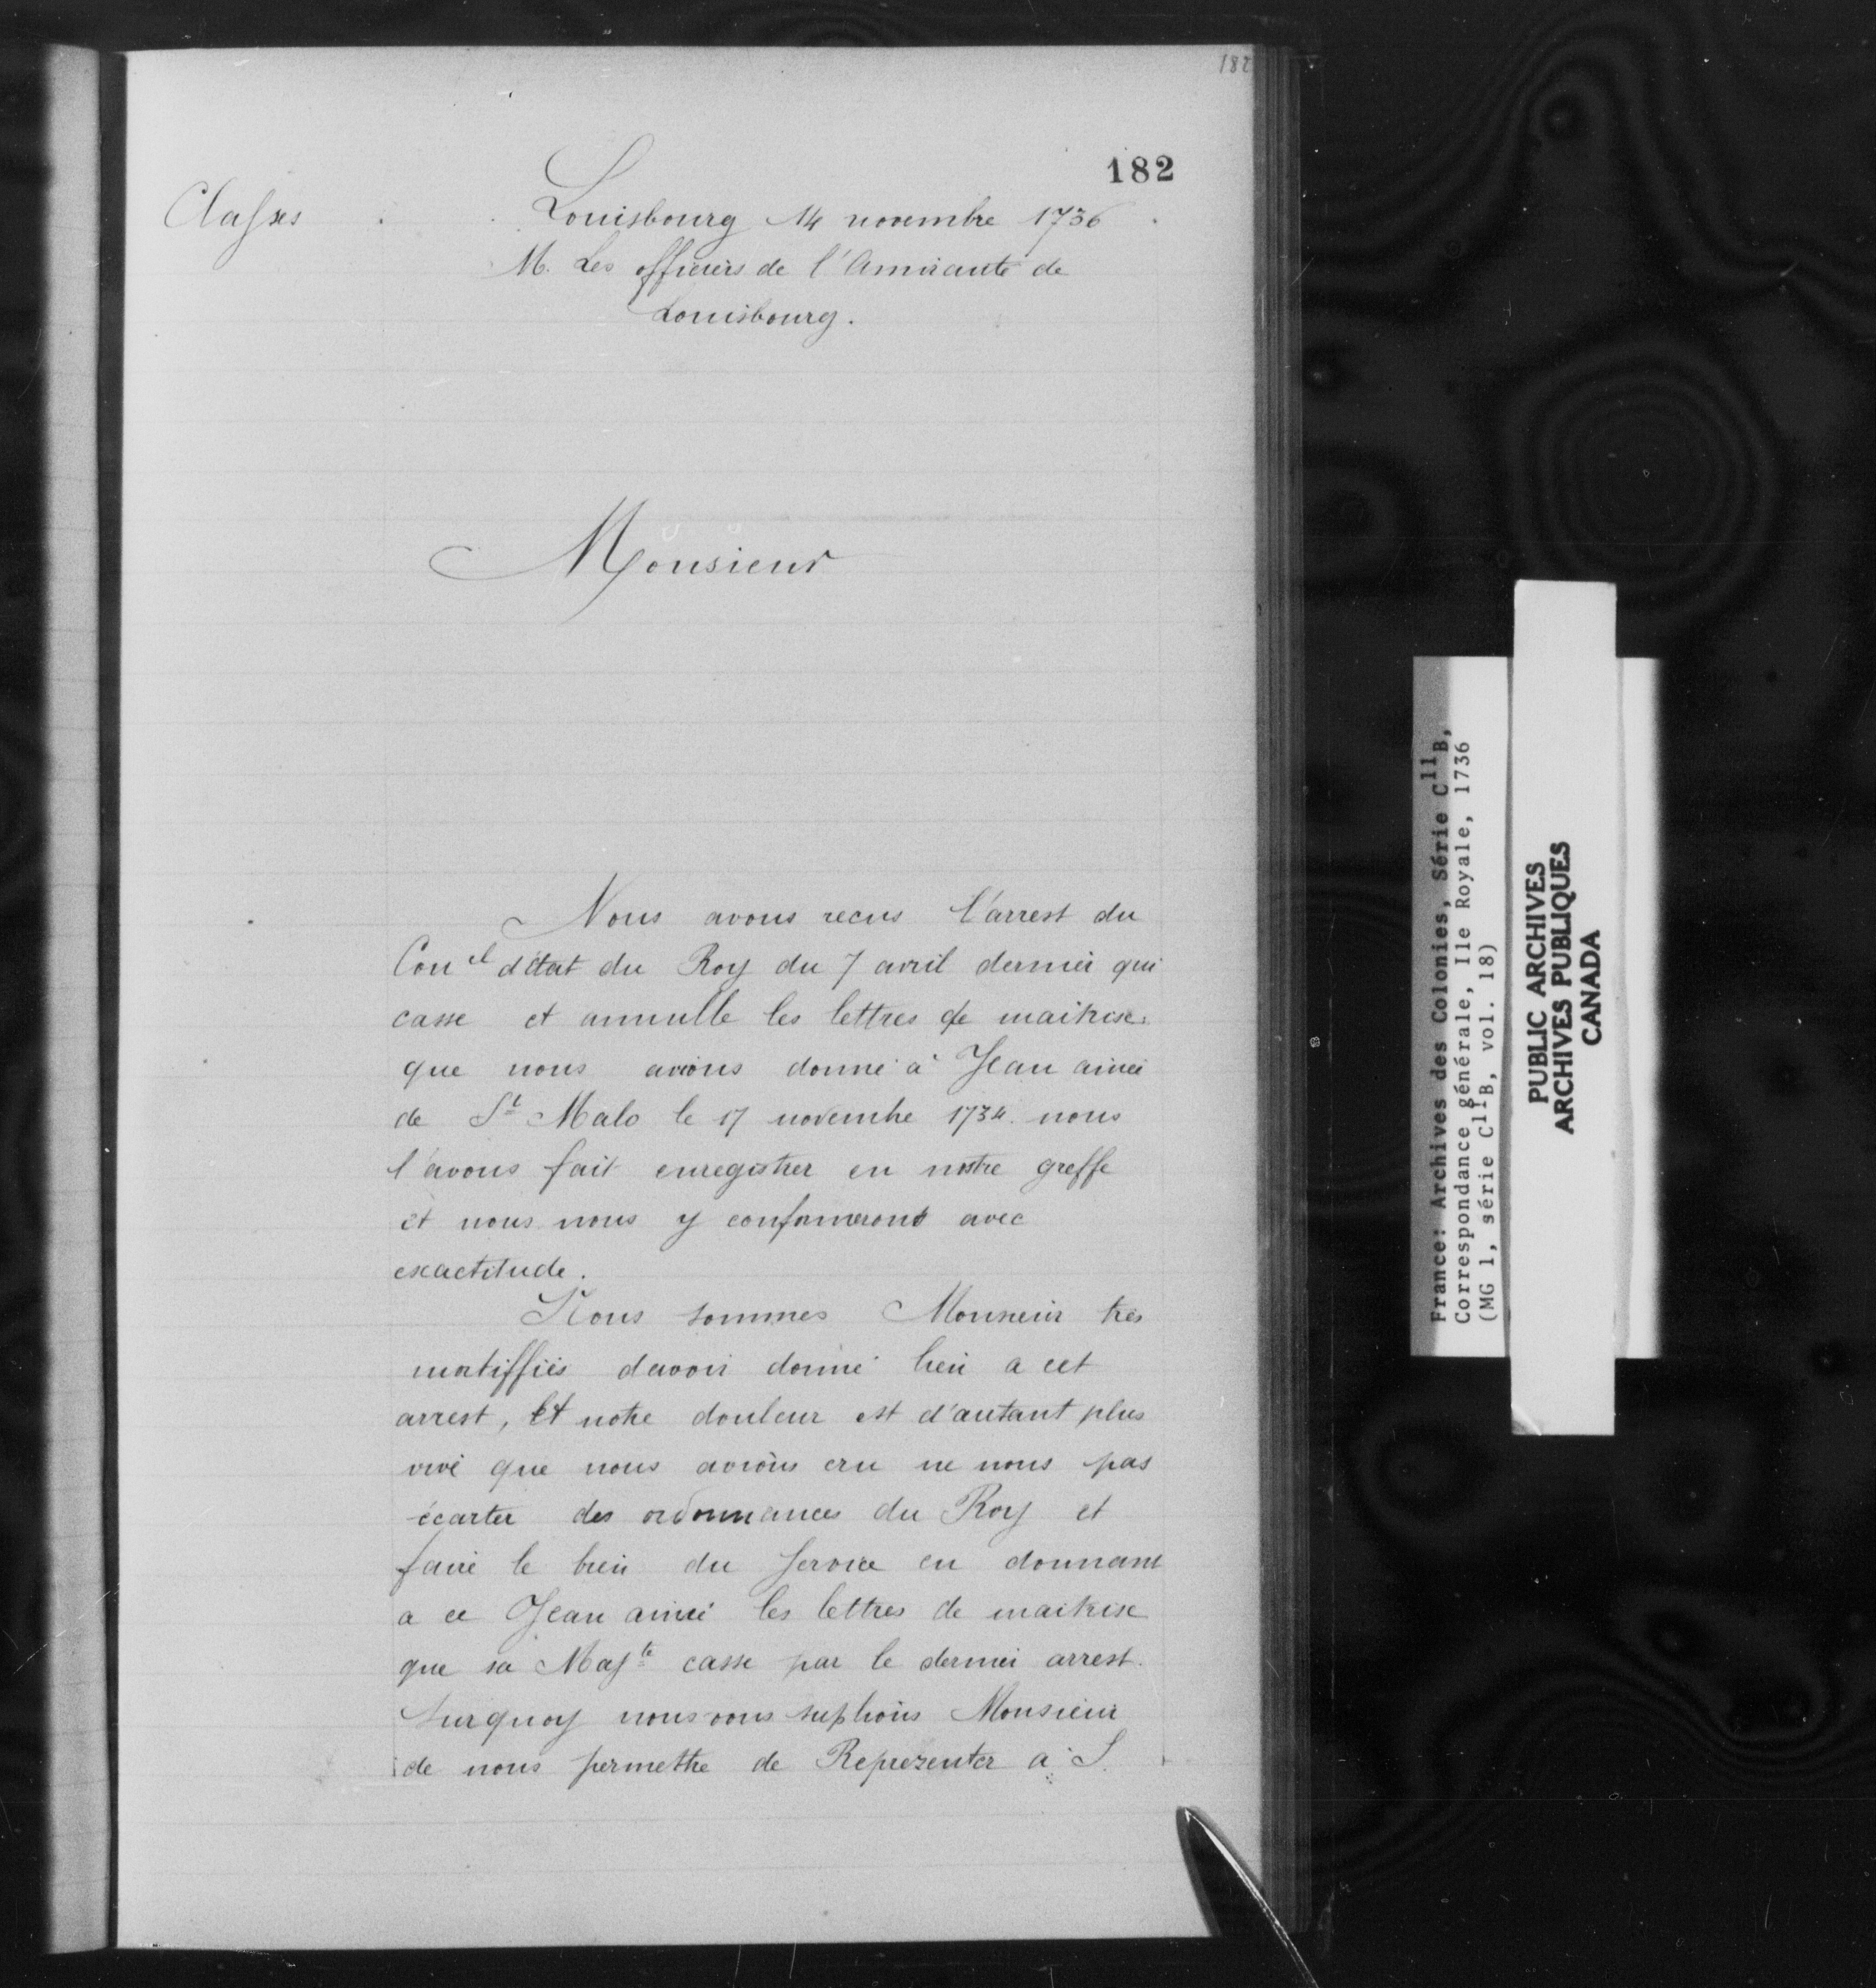 182
182
Classes
Louisbourg 14 novembre 1736
M. Les officiers de l'Amirauté de
Louisbourg.
Monsieur
Nous avons recus l'arrest du
Con.el d'état du Roy du 7 avril dernier qui
casse et annulle les lettres de maitrise
que nous avions donné à Jean aimé
de St Malo le 17 novembre 1734. nous
l'avons fait enregistrer en nostre greffe
et nous nous y conformerons avec
exactitude.
Nous sommes Monsieur très
mortiffiés davoir donné lieu a cet
arrest, Et notre douleur est d'autant plus
vive que nous avions cru ne nous pas
écarter des ordonnances du Roy et
faire le bien du Service en donnant
a ce Jean aimé les lettres de maitrise
que sa Majté casse par le dernier arrest.
Surquoy nous vous suplions Monsieur
de nous permettre de Reprezenter a S.
France: Archives des Colonies, Série C11B,
Correspondance générale, Ile Royale, 1736
(MG 1, série C11B, vol. 18)
PUBLIC ARCHIVES
ARCHIVES PUBLIQUES
CANADA